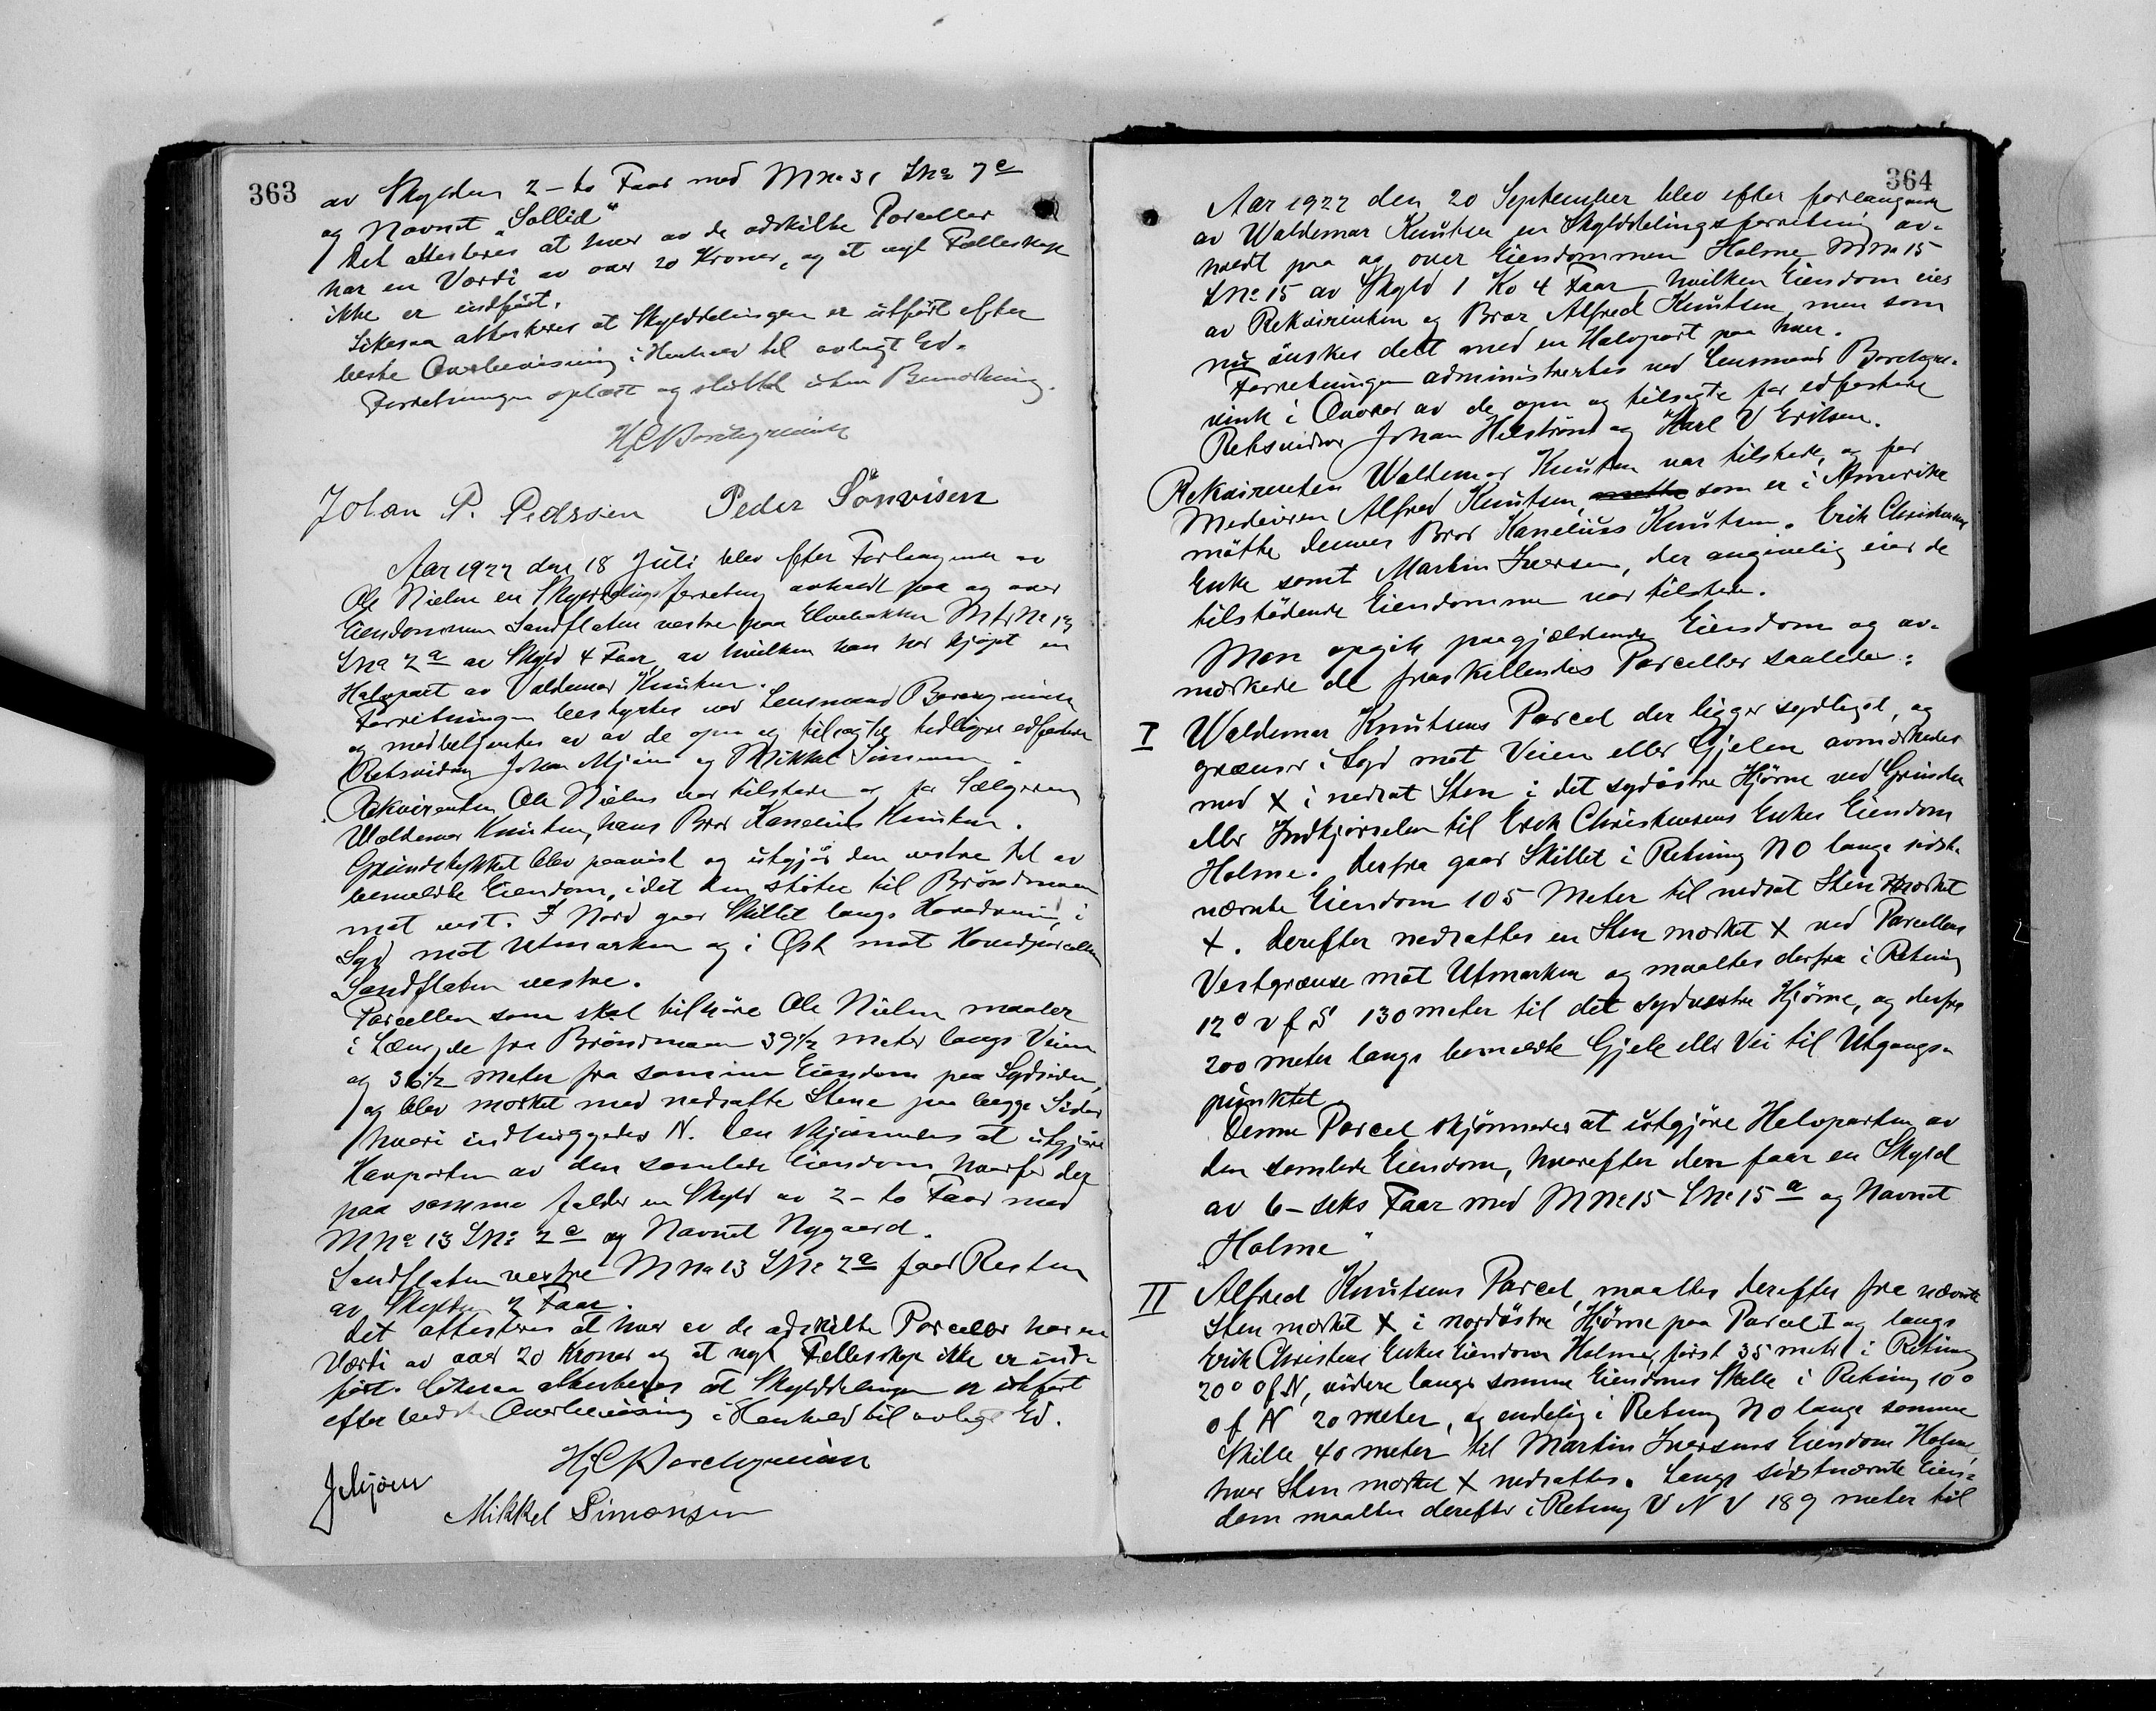 363
av Skylden 2 - to Faar med M No 31 L No 7 c
og Navnet "Sollid"
Det attesteres at hver av de adskilte Parceller
har en Værdi av over 20 Kroner, og at nyt Fælleskap
ikke er indført.
Likesaa attesteres at Skylddelingen er utført efter
beste Overbevisning i Henhold til avlagt Ed.
Forretningen oplæst og sluttet uten Bemerkning.
Johan P. Pedssen Peder Sönvisen
Aar 1922 den 18 Juli blev efter Forlangende av
Ole Nielsen en Skylddelingsforretning avholdt paa og over
Eiendommen Sandflaten vestre paa Elvebakken M No 13
L No 2 a av Skyld 4 Faar, av hvilken han har kjøpt en
Halvpart av Valdemar Knutsen.
Forretningen bestyrtes ved Lensmand
og medbetjentes av av de opn og tilsagte tidligere edfæstede
Retsvidner Johan Mjøen og Mikkel Simonsen
Rekvirenten Ole Nielsen var tilstede og for Sælgeren
Waldemar Knutsen, hans Bror Kanelius Knutsen.
Grundstykket blev paavist og utgjør den vestre Del av
bemeldte Eiendom, idet den støter til Brøndmoen
mot vest. I Nord gaar Skillet langs Hovedveien, i
Syd mot Utmarken og i Øst mot Hovedparcellen
Sandflaten vestre.
Parcellen som skal tilhöre Ole Nielsen maaler
i Længde fra Brøndmoen 39 1/2 meter langs Veien
og 36 1/2 meter fra samme Eiendom paa Sydsiden,
og blev merket med nedsatte Stene paa begge Sider
hvori indhuggedes N. Den skjönnedes at utgjøre
Havparten av den samlede Eiendom hvorfor der
paa samme falder en Skyld av 2 - to Faar med
M No 13 L No 2 c og Navnet Nygaard.
Sandflaten vestre M No 13 L No 2 a faar Resten
av Skylden 2 Faar.
Det attesteres at hver av de adskilte Parceller har en
Værdi av over 20 Kroner og at nyt Fællesskap ikke er ind-
ført. Likesaa attesteres at Skylddelingen er utført
efter bedste Overbevisning i Henhold til avlagt Ed.
JMjöen
Mikkel Simonsen
364
Aar 1922 den 20 September blev efter forlangende
av Waldemar Knutsen en Skylddelingsforretning av-
holdt paa og over Eiendommen Holme M No 15
L No 15 av Skyld 1 Ko 4 Faar, hvilken Eiendom eies
av Rekvirenten og Bror Alfred Knutsen, men som
nu önskes delt med en Halvpart paa hver.
Forretningen administrertes ved Lensmand Borchgre-
vink i Overvær av de opn og tilsagte før edfæstede
Retsvidner Johan Helström og Karl V Eriksen.
Rekvirenten Waldemar Knutsen var tilstede, og for
Medeieren Alfred Knutsen, som er i Amerika
mötte dennes Bror Kanelius Knutsen. Erik Christensens
Enke samt Martin Iversen, der angivelig eier de
tilstödende Eiendomme var tilstede.
Man opgik paagjældende Eiendom og av-
merkede de fraskillendes Parceller saaledes:
I Waldemar Knutsens Parcel der ligger sydligst, og
grænser i Syd mot Veien eller Gjelen avmerkedes
med X i nedsat Sten i det sydöstre Hjörne ved Grinden
eller Indkjörselen til Erik Christensens Enkes Eiendom
Holme. Derfra gaar Skillet i Retning NO langs sidst-
nævnte Eiendom 105 Meter til nedsat Sten merket
X. Derefter nedsattes en Sten merket X ved Parcellens
Vestgrænse mot Utmarken og maaltes derfra i Retning
12° v f S 130 meter til det sydvestre Hjörne, og derfra
200 meter langs bemeldte Gjele eller Vei til Utgangs-
punktet.
Denne Parcel skjönnedes at utgjöre Halvparten av
den samlede Eiendom, hvorefter den faar en Skyld
av 6 - seks Faar med M No 15 L No 15 a og Navnet
Holme"
II Alfred Knutsens Parcel, maaltes derefter fra nævnte
Sten merket X i nordöstre Hjörne paa Parcel I og langs
Erik Christens Enkes Eiendom Holme, først 35 meter i Retning
20° O f N, videre langs samme Eiendoms Skille i Retning 10°
O f N 20 meter, og endelig i Retning NO langs samme
Skille 40 meter til Martin Iversens Eiendom Holme,
hvor Sten merket X nedsattes. Langs sidstnævnte Eien-
dom maaltes derefter i Retning V N V 189 meter til